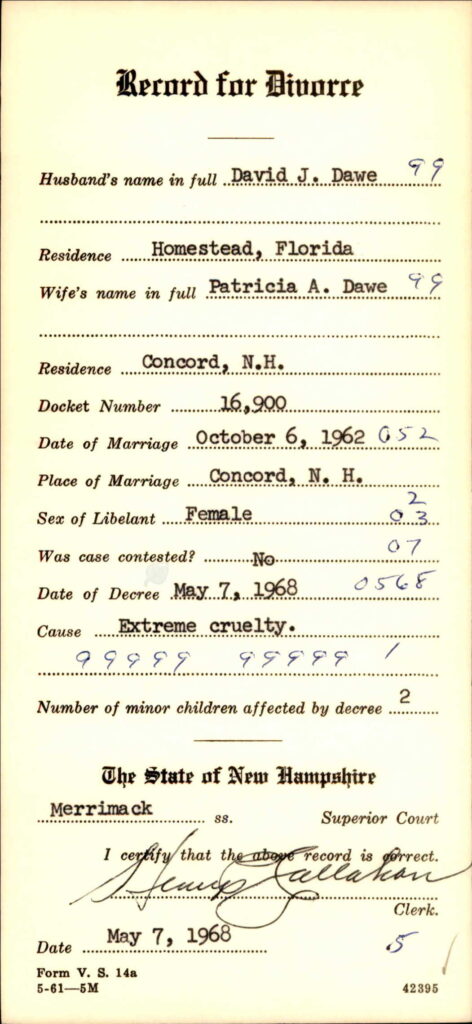 Record for Divorce
Husband's name in full David J. Dawe 99
Residence Homestead, Florida
Wife's name in full Patricia A. Dawe 99
Residence Concord, N.H.
Docket Number 16,900
Date of Marriage October 6, 1962 052
Place of Marriage Concord, N. H.
2
Sex of Libelant Female 03
Was case contested? No 07
Date of Decree May 7, 1968 0568
Cause Extreme cruelty.
99999 99999 1
Number of minor children affected by decree 2
The State of New Hampshire
Merrimack ss. Superior Court
I certify that the above record is correct.
Callahan
Clerk.
Date May 7, 1968 5
Form V. S. 14a
5-61—5M 42395